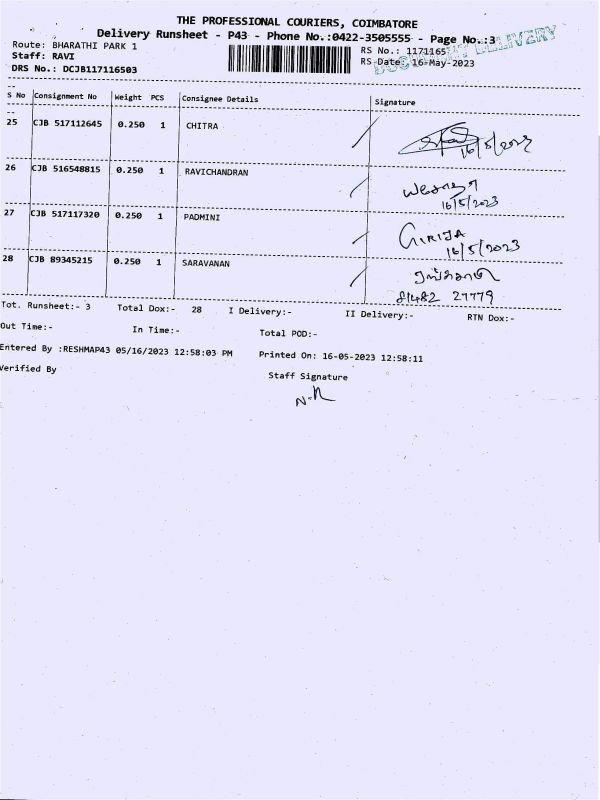 THE PROFESSIONAL COURIERS, COIMBATORE
Delivery Runsheet - P43 - Phone No.:0422-3505555 - Page No.:3
Route: BHARATHI PARK 1
RS No.: 1171165
Staff: RAVI
RS Date: 16-May-2023
DRS No.: DCJB117116503
DELIVERY
S No Consignment No Weight PCS Consignee Details Signature
25 CJB 517112645 0.250 1 CHITRA
16/5/2023
26 CJB 516548815 0.250 1 RAVICHANDRAN
16/5/2023
27 CJB 517117320 0.250 1 PADMINI GIRIJA
16/5/2023
28 CJB 89345215 0.250 1 SARAVANAN
81482 27779
Tot. Runsheet:- 3 Total Dox:- 28 I Delivery:- II Delivery:- RTN Dox:-
Out Time:- In Time:- Total POD:-
Entered By :RESHMAP43 05/16/2023 12:58:03 PM Printed On: 16-05-2023 12:58:11
Verified By Staff Signature